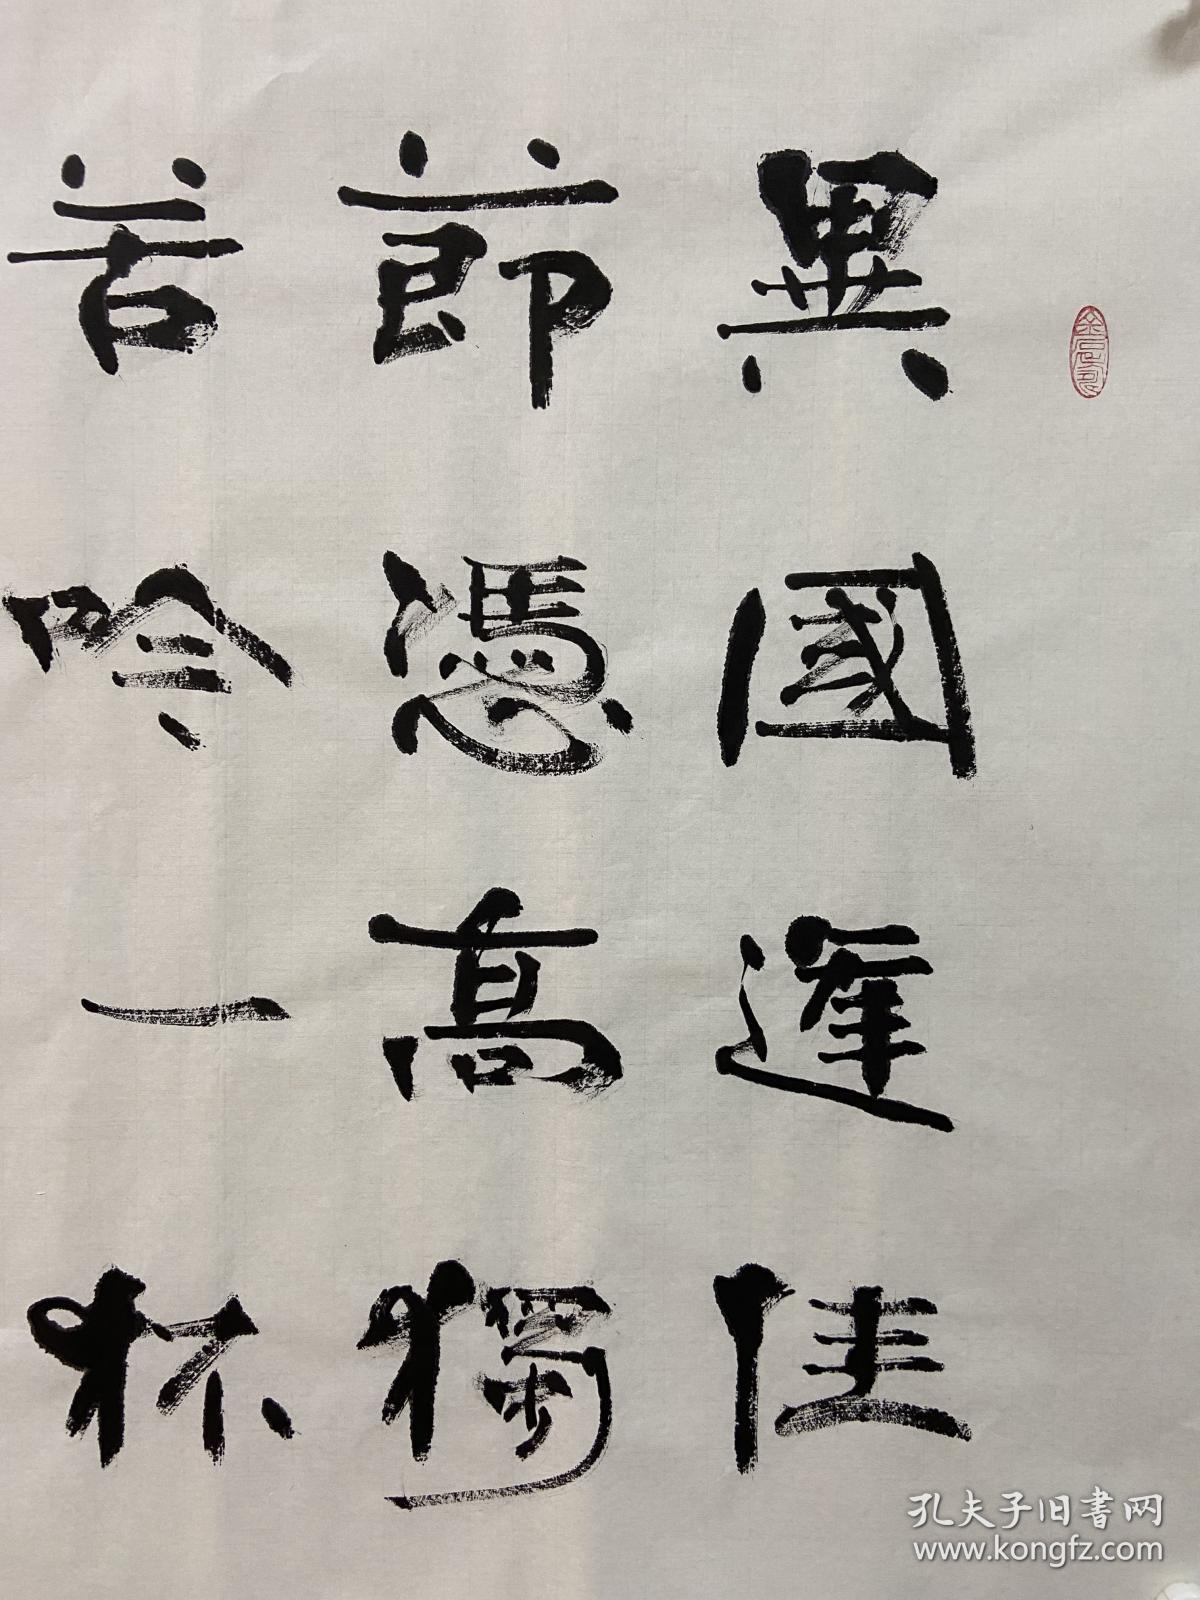 異國逢佳
節憑高獨
苦吟一杯
孔夫子旧书网
www.kongfz.com